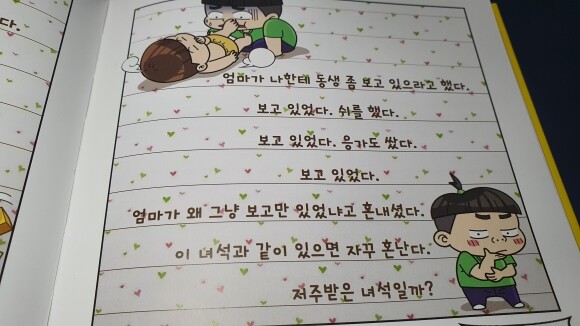 다.
엄마가 나한테 동생 좀 보고 있으라고 했다.
보고 있었다. 쉬를 했다.
보고 있었다. 응가도 쌌다.
보고 있었다.
엄마가 왜 그냥 보고만 있었냐고 혼내셨다.
이 녀석과 같이 있으면 자꾸 혼난다.
저주받은 녀석일까?